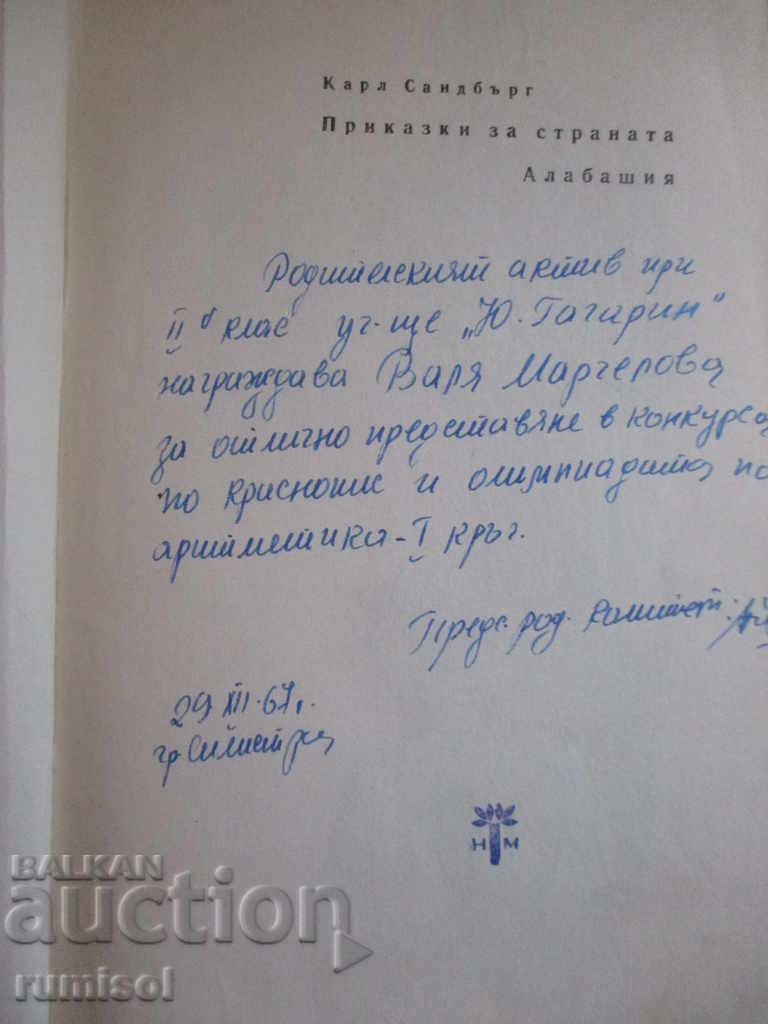 Карл Сандбърг
Приказки за страната
Алабашия
Родителският актив при
II клас уч-ще „Ю. Гагарин"
награждава Валя Маргелова
за отлично представяне в конкурса
по краснопис и олимпиадата по
аритметика - I кръг.
Предс. род. комитет:
29 XII. 67 г.
гр. Силистра
Н М
BALKAN
auction
rumisol